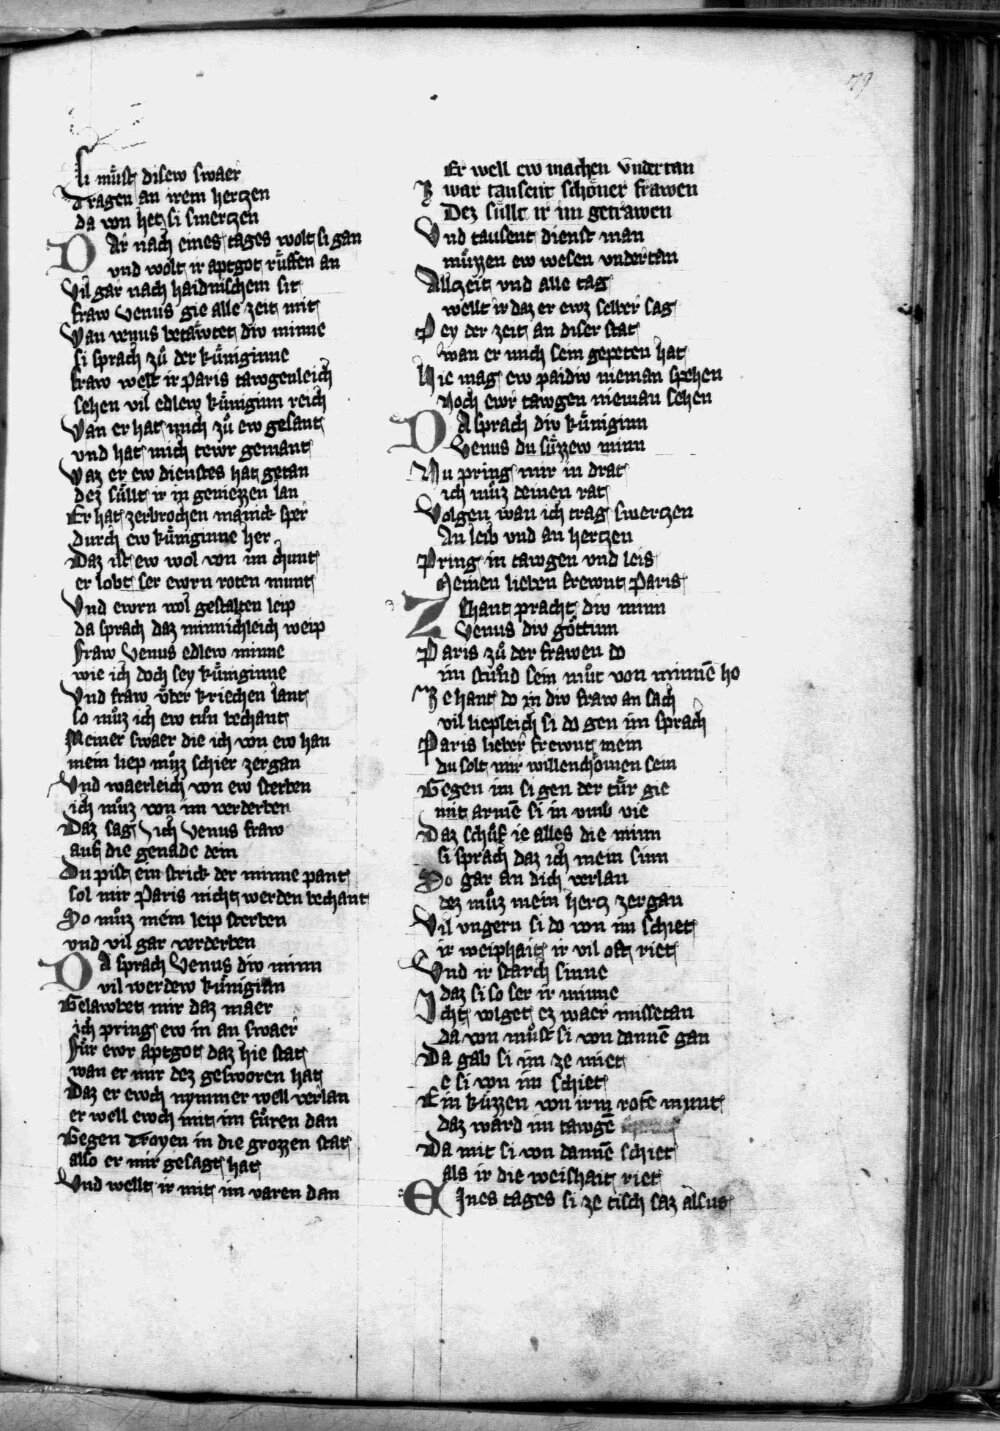 79
Si můst disew swaer
Tragen an irem hertzen
da von het si smerczen
Dar nach eines tages wolt si gan
vnd wolt ir aptgot růffen an
Vil gar nach haidnischem sit
fraw Venus gie alle zeit mit
Wan venus betäwtet div minne
si sprach zů der kůniginne
fraw welt ir Paris tawgenleich
sehen vil edlew kůniginn reich
Wan er hat mich zů ew gesant
vnd hat mich tewr gemant
Waz er ew dienstes hat getan
dez sůllt ir in geniezzen lan
Er hat zerbrochen mainck sper
durch ew kůniginne her
Daz ist ew wol von im chunt
er lobt ser ewrn roten munt
Vnd ewrn wol gestalten leip
da sprach daz minnichleich weip
fraw Venus edlew minne
wie ich doch sey kůniginne
Vnd fraw vͤber kriechen lant
so můz ich ew tůn bechant
Meiner swaer die ich von ew han
mein liep můz schier zergan
Vnd waerleich von ew sterben
ich můz von im verderben
Daz sag ich Venus fraw
auf die genade dein
Du pist ein strick der minne pant
sol mir Paris nicht werden bechant
So můz mein leip sterben
vnd vil gar verderben
Da sprach Venus div minn
vil werdew kůnigiun
Gelawbet mir daz maer
ich pring ew in an swaer
Fůr ewr aptgot daz hie stat
wan er mir dez gesworen hat
Daz er ewch nymmer well verlan
er well ewch mit im fůren dan
Gegen Troyen in die grozzen stat
also er mir gesagt hat
Vnd wellt ir mit im varen dan
Er well ew machen vndertan
Z war tausent schöner frawen
Dez sůllt ir im getrawen
Vnd tausent dienst man
můzzen ew wesen vndertan
Allczeit vnd alle tag
wellt ir daz er ewz selber sag
Pey der zeit an diser stat
wan er mich sein gepeten hat
Hie mag ew paidiv nieman spehen
Noch ewr tawgen nieman sehen
Da sprach div kůniginn
Venus du sůzzew minn
Nu pring mir in drat
ich můz deinen rat
Volgen wan ich trag swerczen
An leib vnd an hertzen
Pring in tawgen vnd leis
Meinen lieben frewnt Paris
Zehant pracht div minn
Venus div göttinn
Paris zů der frawen do
im stůnd sein můt von minnē ho
Ze hant do in div fraw an sach
vil liepleich si do gen im sprach
Paris lieber frewnt mein
du solt mir willenchömen sein
Gegen im si gen der tůr gie
mit armē si in vmb vie
Daz schůf ie alles die minn
si sprach daz ich mein sinn
So gar an dich verlan
dez můz mein hertz zergan
Vil vngern si do von im schiet
ir weiphait ir vil oft riet
Vnd ir starch sinne
daz si so ser ir minne
Icht wlget ez waer missetan
da von můst si von dannē gan
Da gab si im ze miet
e si von im schiet
Ein kůzzen von irm rotē munt
daz ward im tawgē
Da mit si von dannē schiet
als ir die weishait riet
Eines tages si ze tisch saz alsus